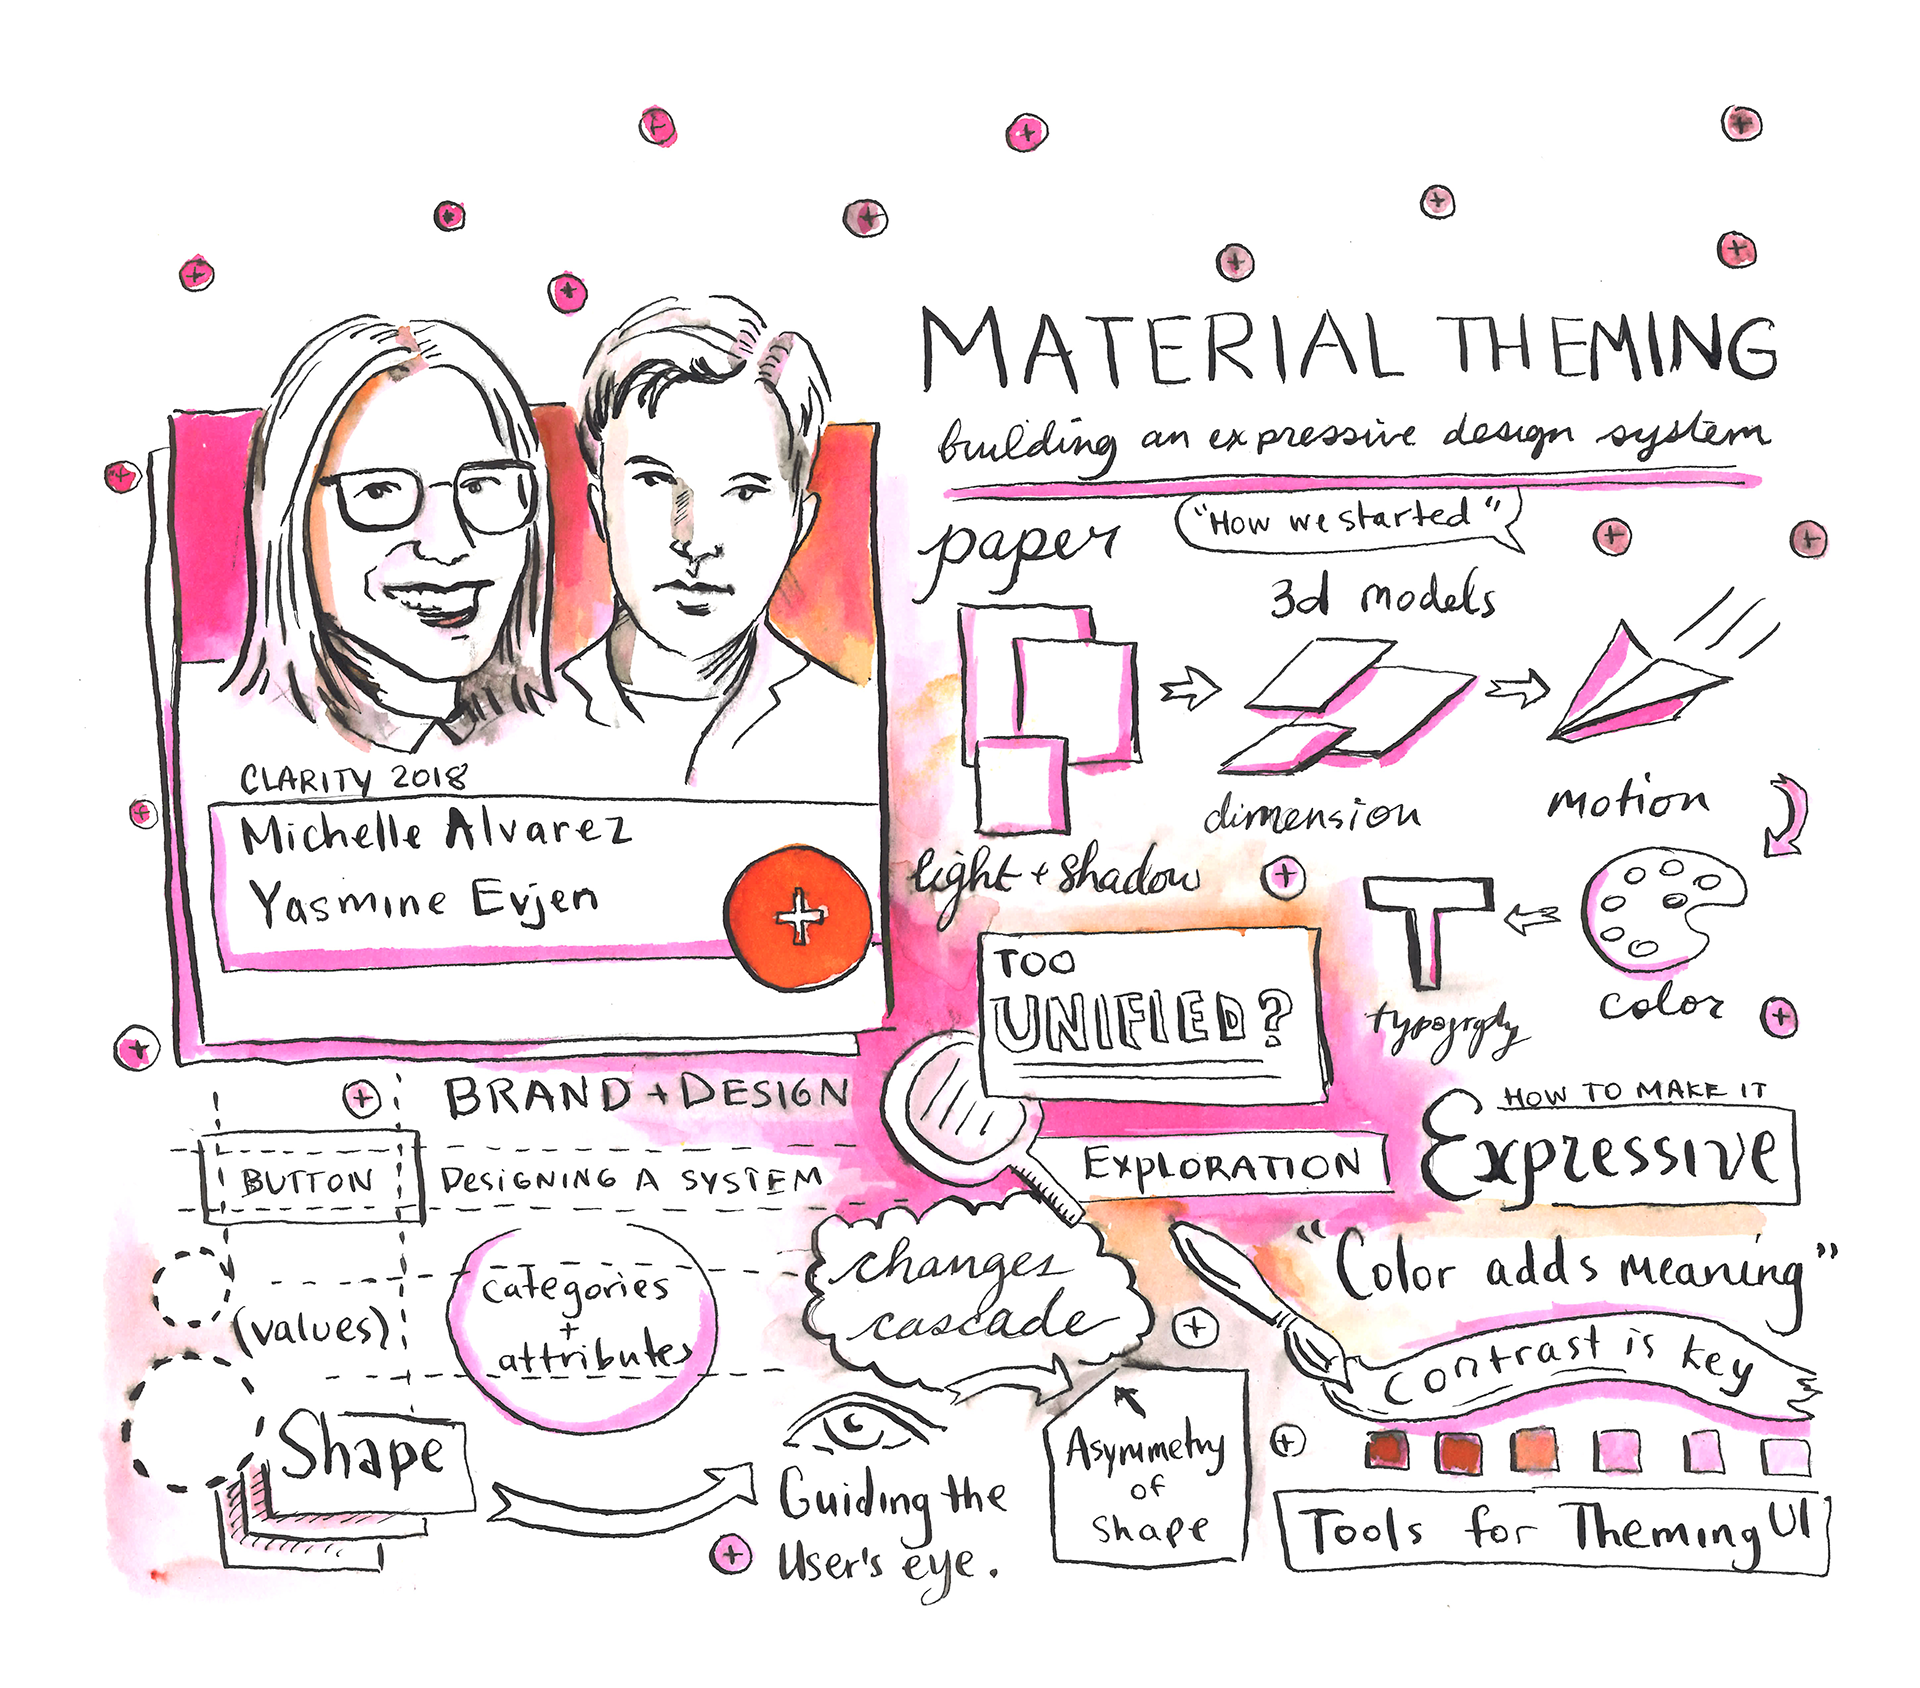 MATERIAL THEMING
building an expressive design system
"How we started"
paper
3d models
light + shadow
dimension
motion
color
CLARITY 2018
Michelle Alvarez
Yasmine Evjen
TOO
UNIFIED?
EXPLORATION
HOW TO MAKE IT
Expressive
BRAND + DESIGN
BUTTON
DESIGNING A SYSTEM
(values)
categories
+
attributes
changes
cascade
Shape
Guiding the
User's eye.
Asymmetry
OF
shape
"Color adds meaning"
Contrast is key
Tools for Theming UI